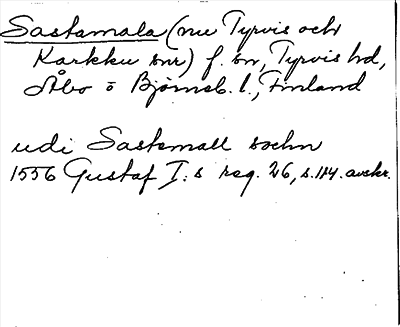 Sastamala (nu Tyrvis och
Karkku snr) f. sn, Tyrvis hd,
Åbo o Björneb. l., Finland
udi Sastemall sochn
1556 Gustaf I:s reg. 26, s. 114. avskr.